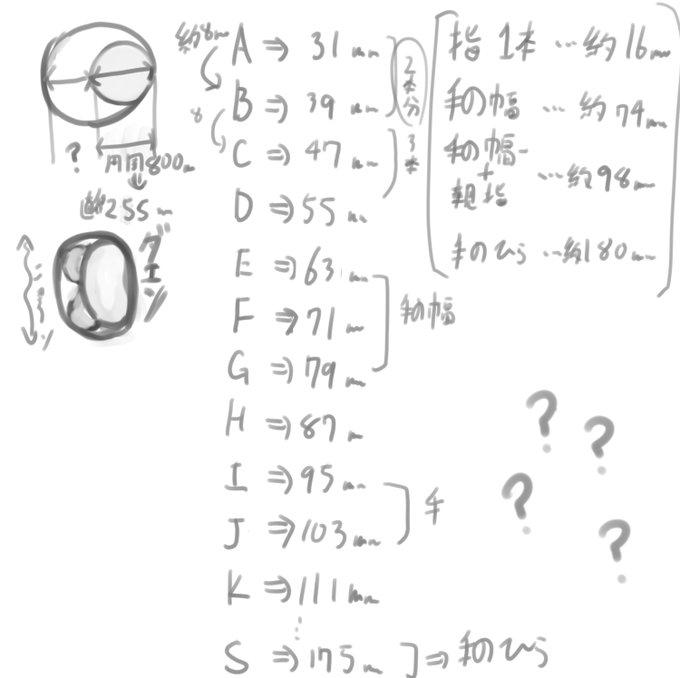 約8mm
8
A ⇒ 31mm
B ⇒ 39mm
C ⇒ 47mm
D ⇒ 55mm
E ⇒ 63mm
F ⇒ 71mm
G ⇒ 79mm
H ⇒ 87mm
I ⇒ 95mm
J ⇒ 103mm
K ⇒ 111mm
⋮
S ⇒ 175mm ⇒ 手のひら
2本分
3本
手の幅
手
指 1本 … 約16mm
手の幅 … 約74mm
手の幅
+
親指 … 約98mm
手のひら … 約180mm
?
円周800mm
255mm
?
?
?
?